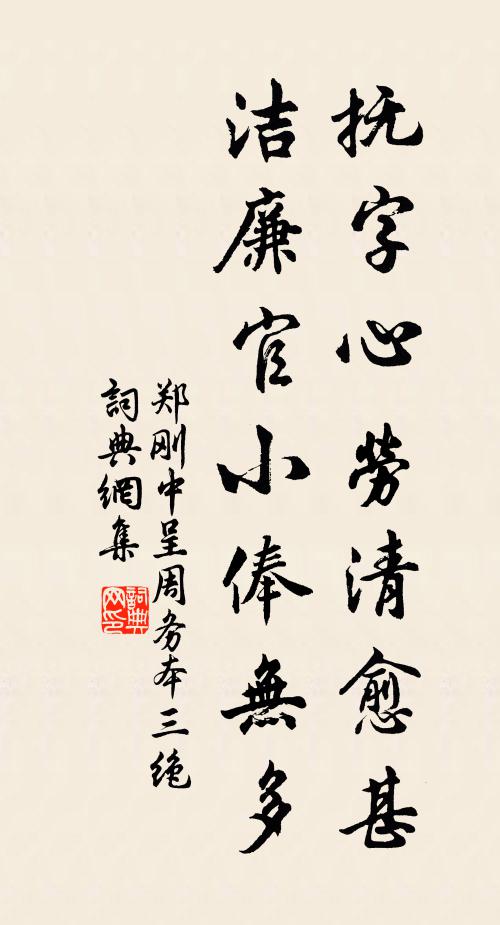 抚字心劳清愈甚
洁廉官小俸無多
郑刚中呈周务本三绝
詞典網集
詞典网印